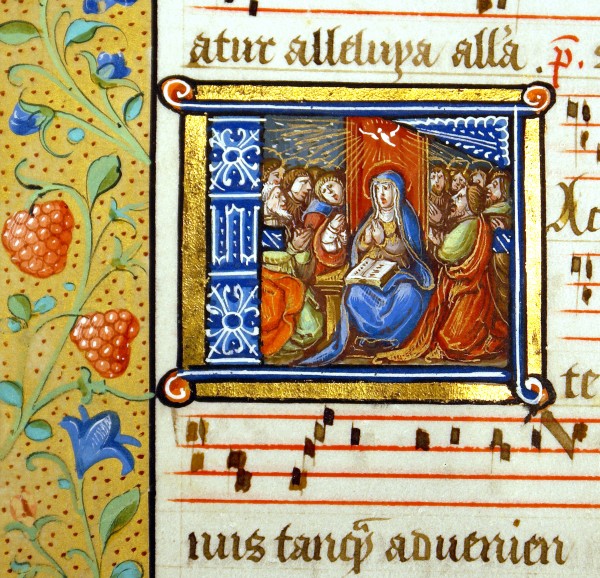 atur alleluya all'a . p̃.
Ac
te
nus tanq̃ advenien